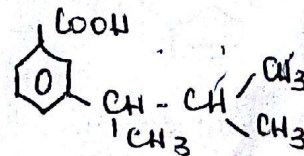 COOH
O
CH - CH CH3
CH3 CH3